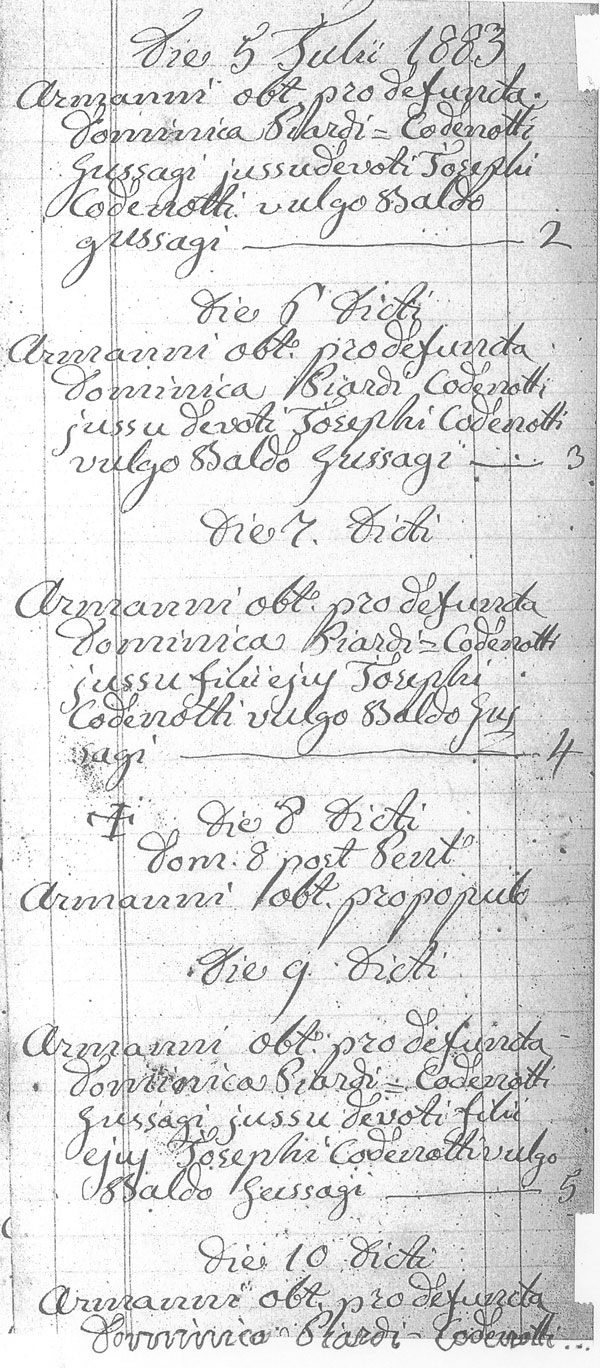 Die 5 Julii 1883
Armanni obt. pro defuncta
Dominica Piardi = Codenotti
Gussagi jussu devoti Josephi
Codenotti vulgo Baldo
gussagi — 2
Die 6 Dicti
Armanni obt. pro defuncta
Dominica Piardi Codenotti
jussu devoti Josephi Codenotti
vulgo Baldo Gussagi — 3
Die 7. Dicti
Armanni obt. pro defuncta
Dominica Piardi = Codenotti
jussu filii ejus Josephi
Codenotti vulgo Baldo Gus
sagi — 4
Die 8 Dicti
Dom. 8 post Pent.
Armanni obt. pro populo
Die 9 Dicti
Armanni obt. pro defuncta
Dominica Piardi = Codenotti
Gussagi jussu devoti filii
ejus Josephi Codenotti vulgo
Baldo Gussagi — 5
Die 10 Dicti
Armanni obt. pro defuncta
Dominica Piardi - Codenotti